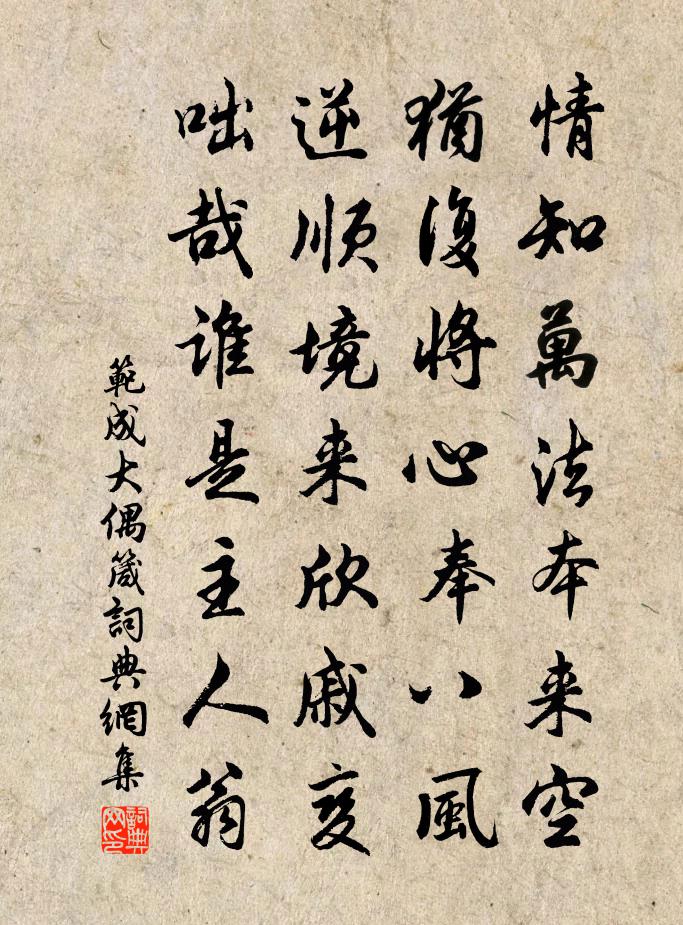 情知萬法本来空
猶復將心奉八風
逆順境来欣戚变
咄哉誰是主人翁
範成大偶箴詞典網集
詞典网印